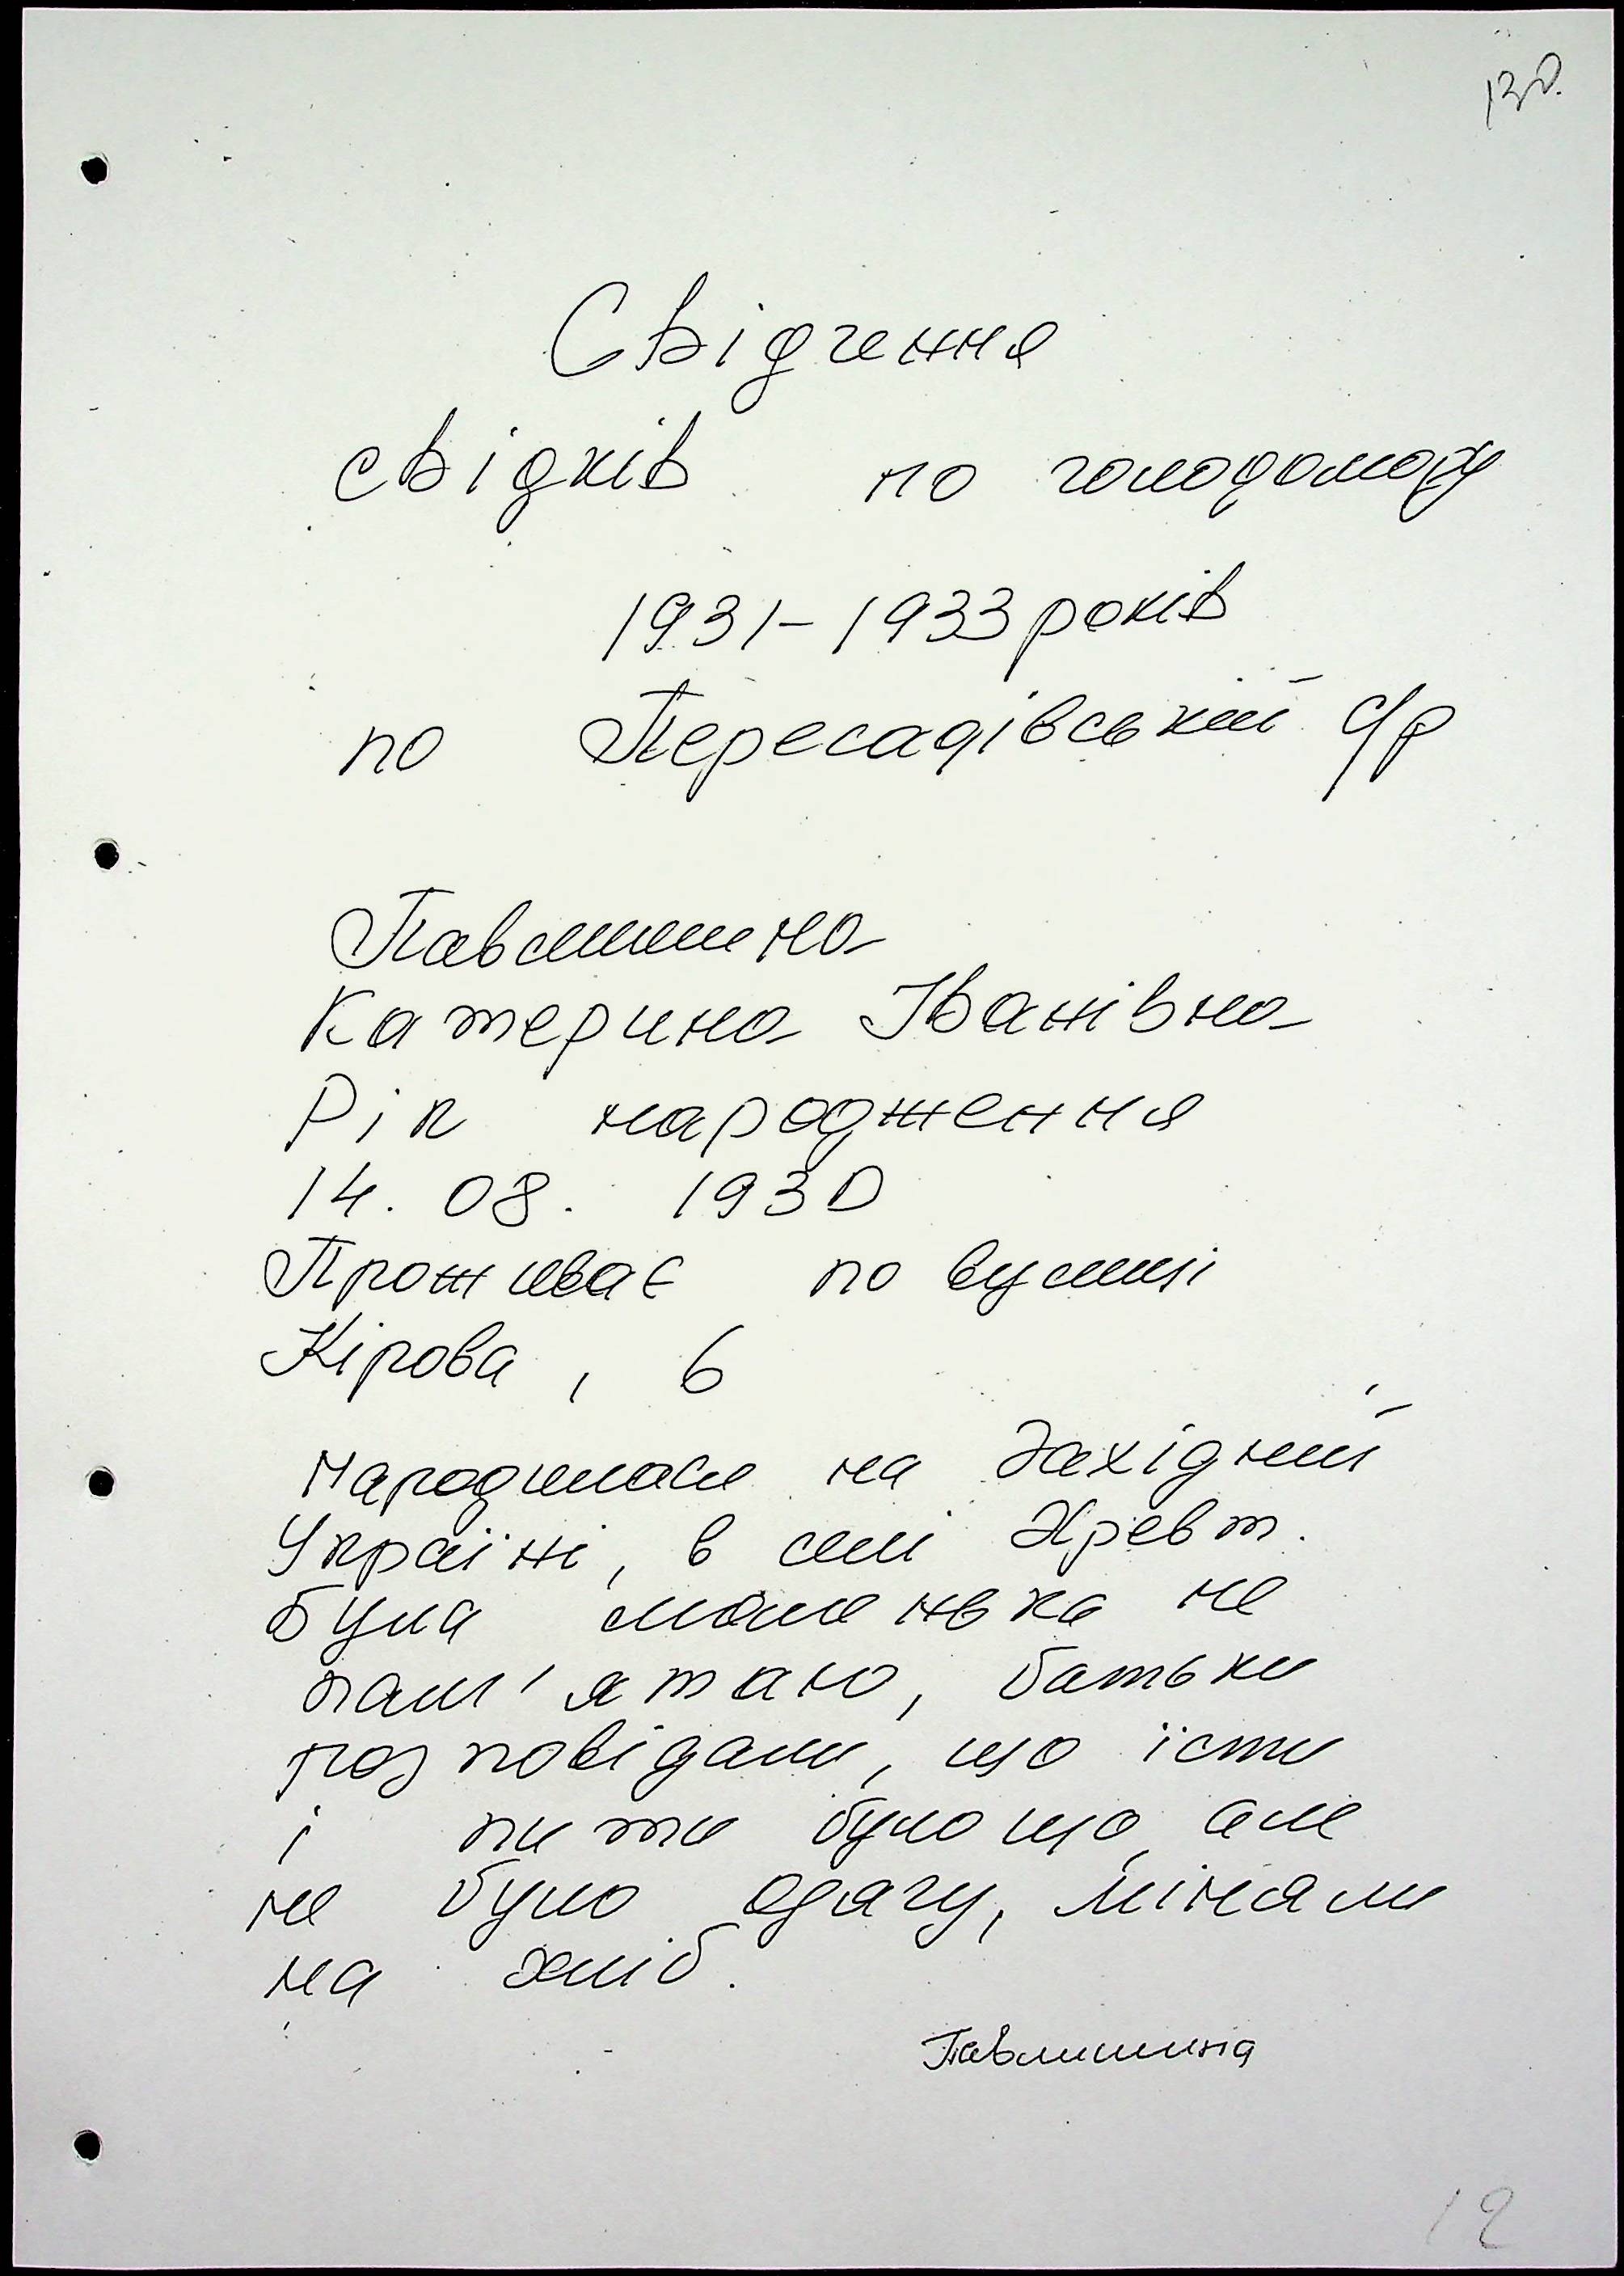 130.
Свідчення
свідків по голодомору
1931-1933 років
по Пересадівській с/р
Павлишина
Катерина Іванівна
Рік народження
14.08.1930
Проживає по вулиці
Кірова, 6
Народилася на Західній
Україні, в селі Хревт.
Була маленька не
пам'ятаю, батьки
розповідали, що їсти
і пити було що, але
не було одягу, міняли
на хліб.
Павлишина
12